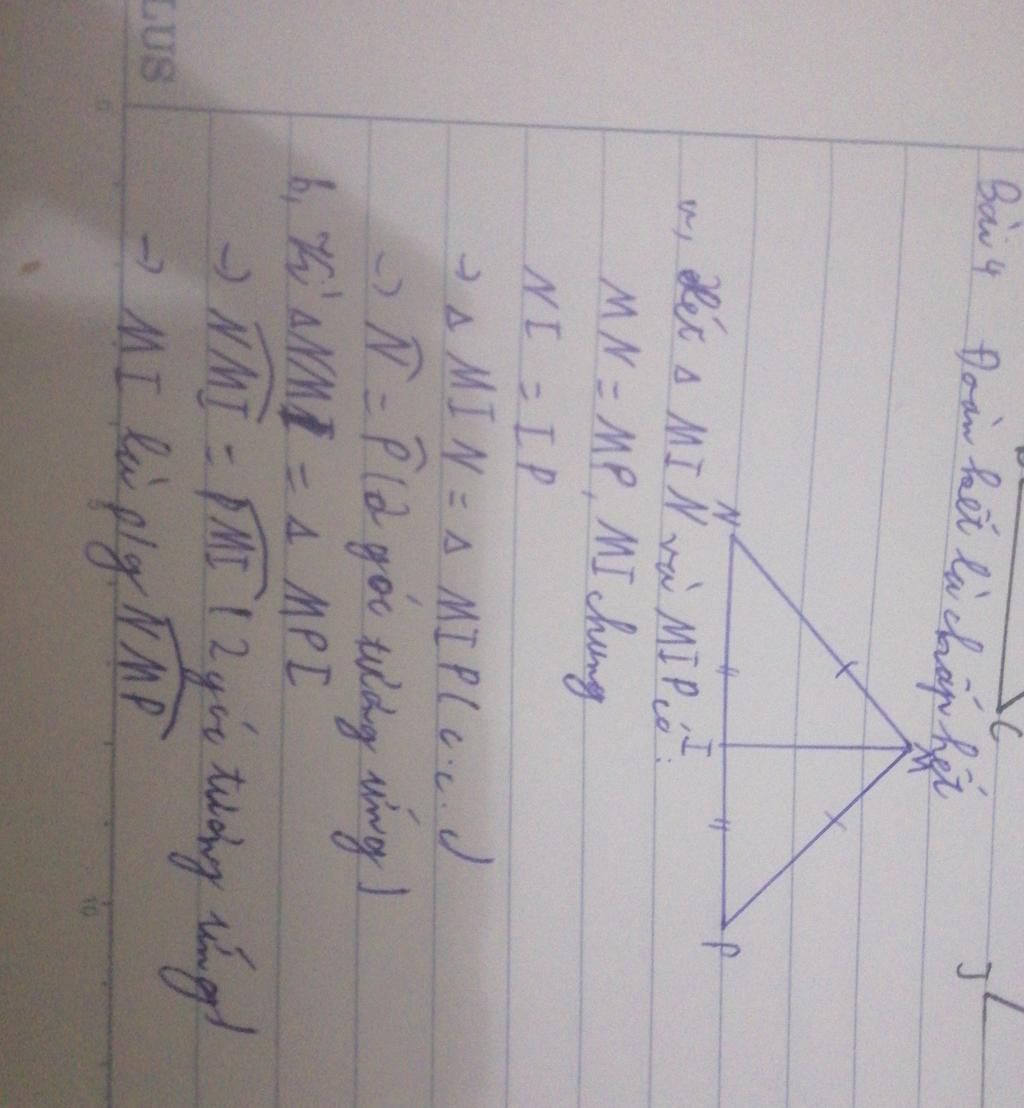 Bài 4 Đoàn kết là chấp hết
C
J
M
N
I
P
a, Xét Δ MIN và MIP có:
MN = MP, MI chung
NI = IP
→ Δ MIN = Δ MIP (c.c.c)
→ N̂ = P̂ (2 góc tương ứng)
b, Từ Δ NMI = Δ MPI
→ NMI = PMI (2 góc tương ứng)
→ MI là p/g NMP
LUS
0
10